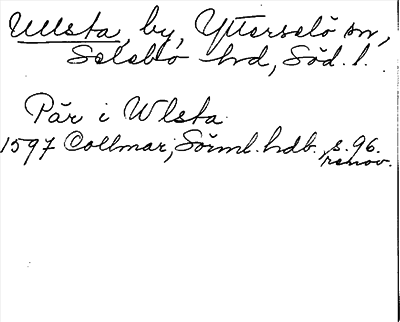 Ullsta, by, Ytterselö sn,
Selebo hd, Söd. l.
Pär i Wlsta
1597 Collmar, Sörml. hdb. s. 96.
renov.